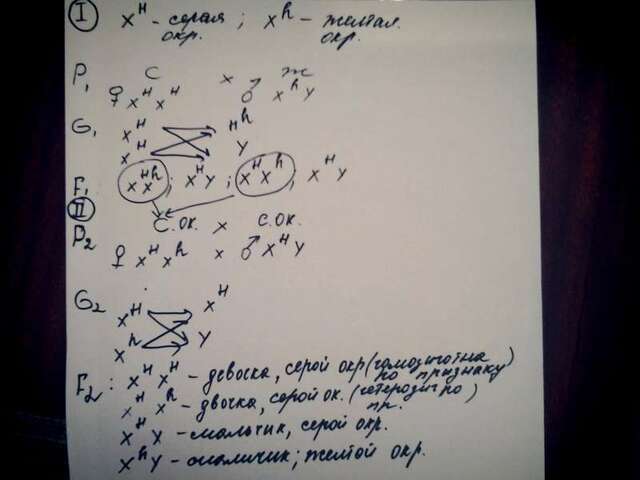 I X^H - серая ; X^h - желтая
окр. окр.
P₁ С x ж
♀ X^H X^H ♂ X^h Y
G₁ X^H H^h
X^H Y
F₁ X X^Hh ; X^H Y ; X^H X^h , X^H Y
II С.ок. x С.ок.
P₂ ♀ X^H X^h x ♂ X^H Y
G₂ X^H X^H
X^h Y
F₂ : X^H X^H - девоска, серой окр (гомозиготна
по признаку)
X^H X^h - двочка, серой ок. (гетерозиг по
пр. )
X^H Y - мальчик, серой окр.
X^h Y - мальчик; желтой окр.